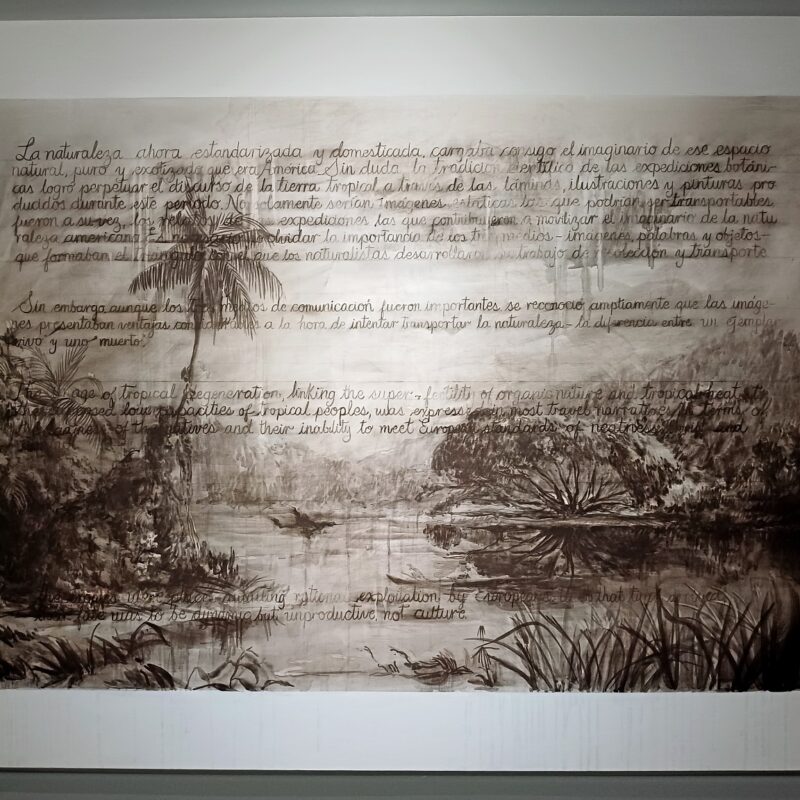 La naturaleza ahora estandarizada y domesticada, cargaba consigo el imaginario de ese espacio
natural, puro y exotizado que era América. Sin duda, la tradición científica de las expediciones botáni-
cas logró perpetuar el discurso de la tierra tropical a través de las láminas, ilustraciones y pinturas pro
ducidos durante este período. No solamente serían imágenes estáticas las que podrían ser transportables
fueron a su vez, los relatos de expediciones las que contribuyeron a movilizar el imaginario de la natu
raleza americana. Es necesario olvidar la importancia de los tres medios - imágenes, palabras y objetos-
que formaban el triángulo con el que los naturalistas desarrollaron su trabajo de recolección y transporte
Sin embargo aunque los tres medios de comunicación fueron importantes, se reconoció ampliamente que las imáge-
nes presentaban ventajas considerables a la hora de intentar transportar la naturaleza - la diferencia entre un ejemplar
vivo y uno muerto.
The age of tropical degeneration, linking the super-fertility of organic nature and tropical heat to
the low capacities of tropical peoples, was expressed in most travel narratives in terms of
the of the natives and their inability to meet European standards of neatness, and
were places awaiting rational exploitation by Europeans that
their fate was to be but unproductive, not culture.